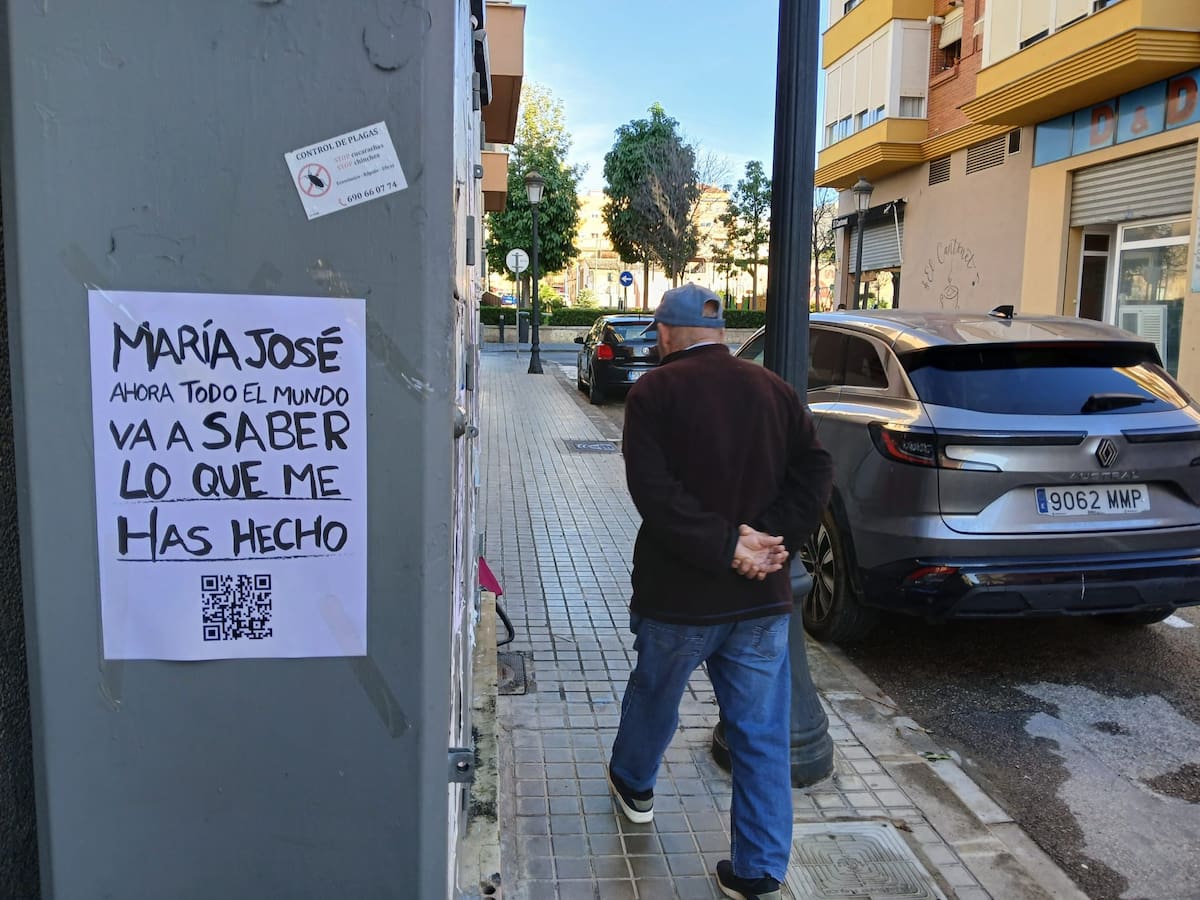 CONTROL DE PLAGAS
STOP cucarachas
STOP chinches
Económico - Rápido - Eficaz
690 66 07 74
MARÍA JOSÉ
AHORA TODO EL MUNDO
VA A SABER
LO QUE ME
HAS HECHO
D & D
El Cantonet
AUSTRAL
E
9062 MMP